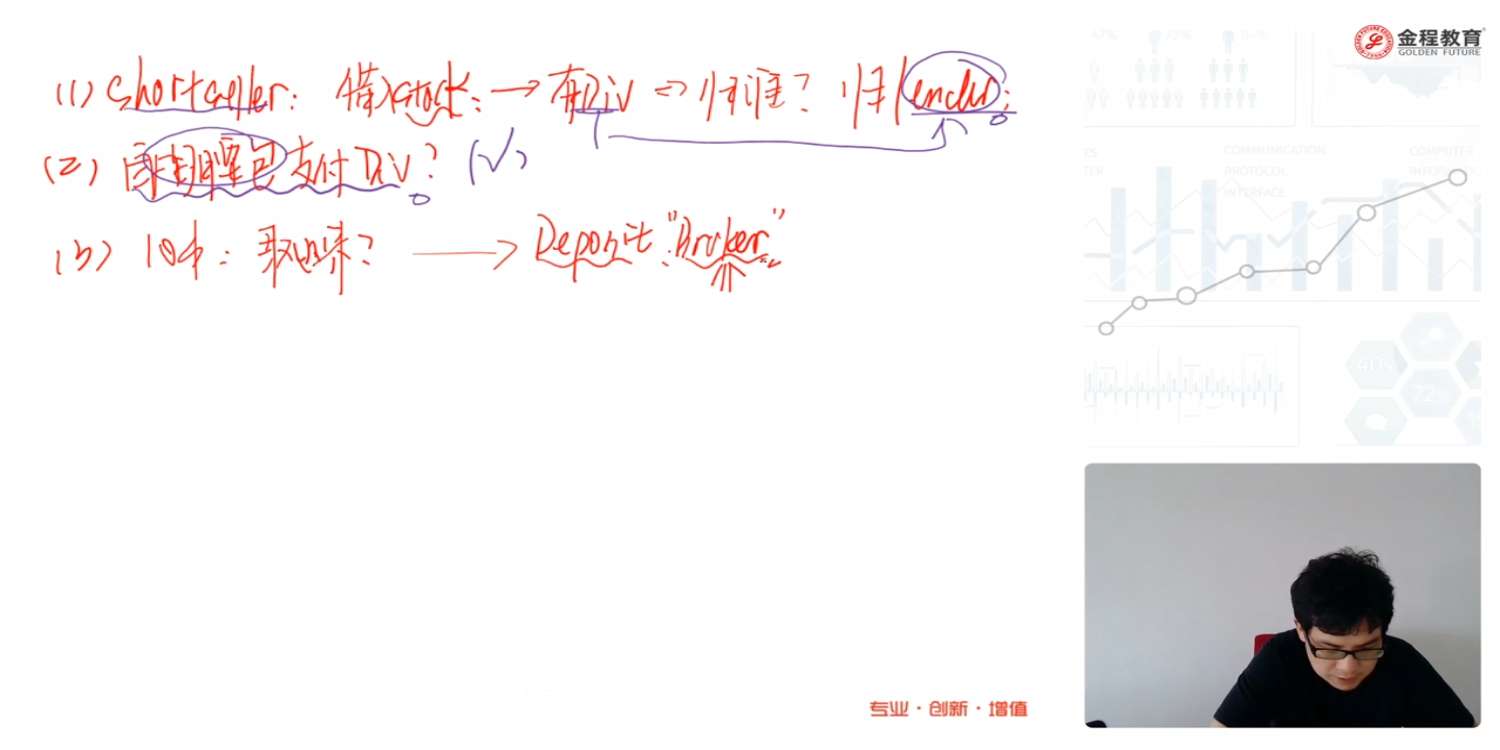 (1) Shortseller: 借入stock: → 有Div ⇒ 归谁? 归lender:
(2) 自掏腰包支付Div? (√)
(3) 10中: 取出来? → Deposit "Broker"
金程教育
GOLDEN FUTURE
COMMUNICATION
PROTOCOL
INTERFACE
40%
72%
专业·创新·增值